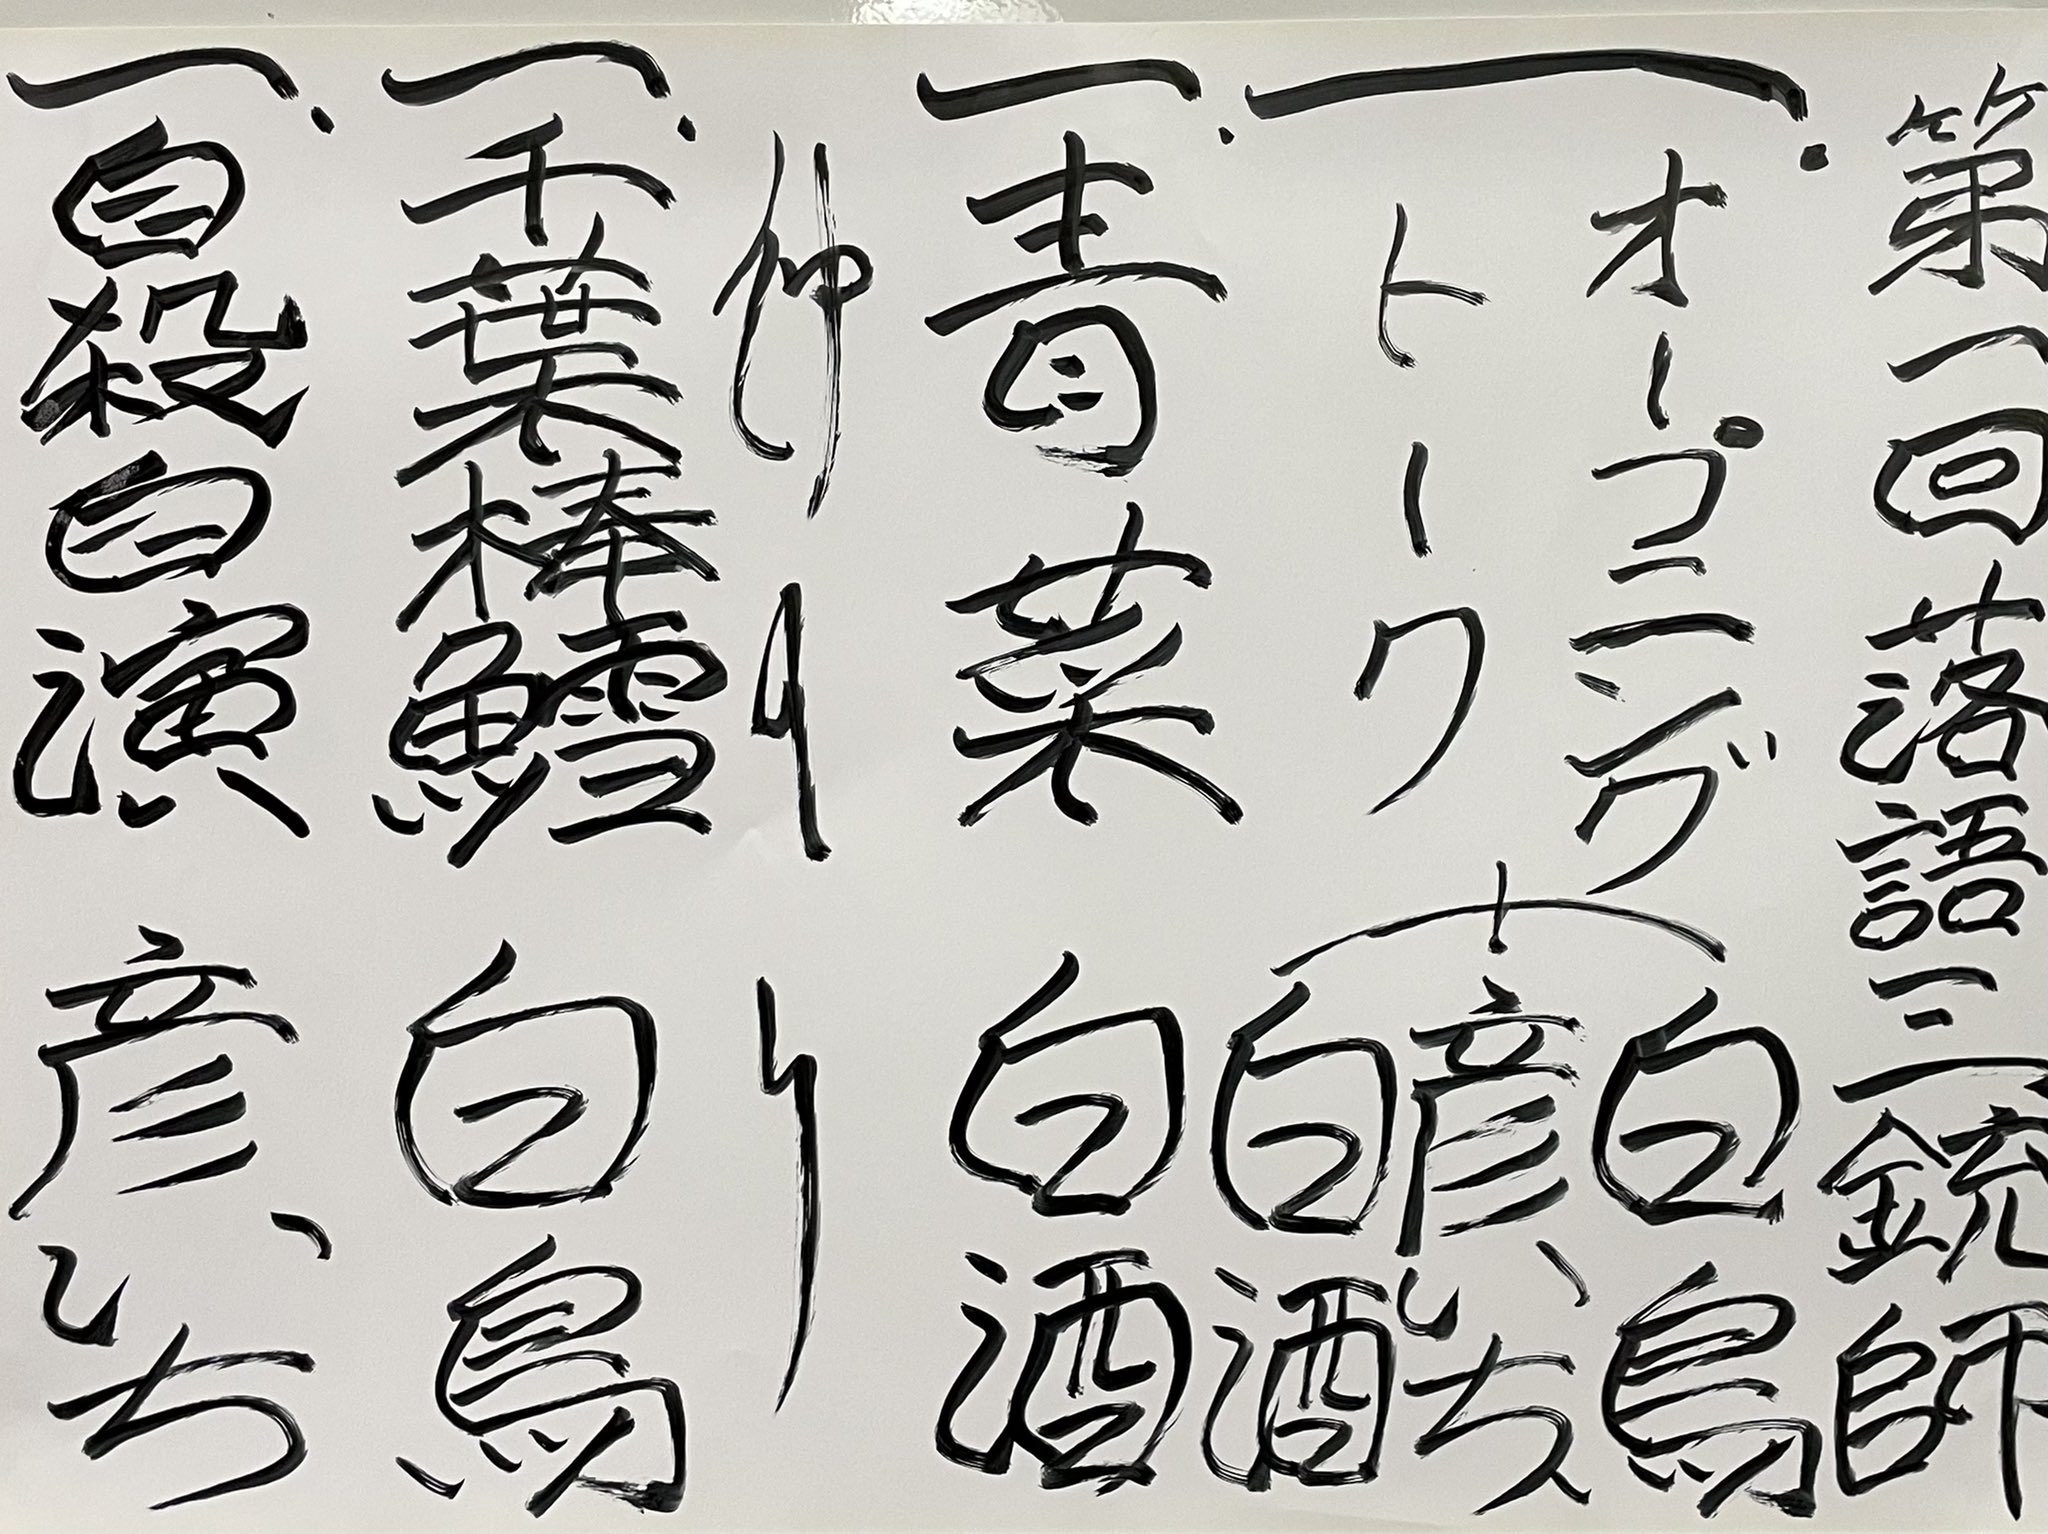 第一回落語三銃師
一、オープニング
トーク
白鳥
彦いち
白酒
一、青菜 白酒
仲入り
一、千葉棒鱈 白鳥
一、自殺自演 彦いち